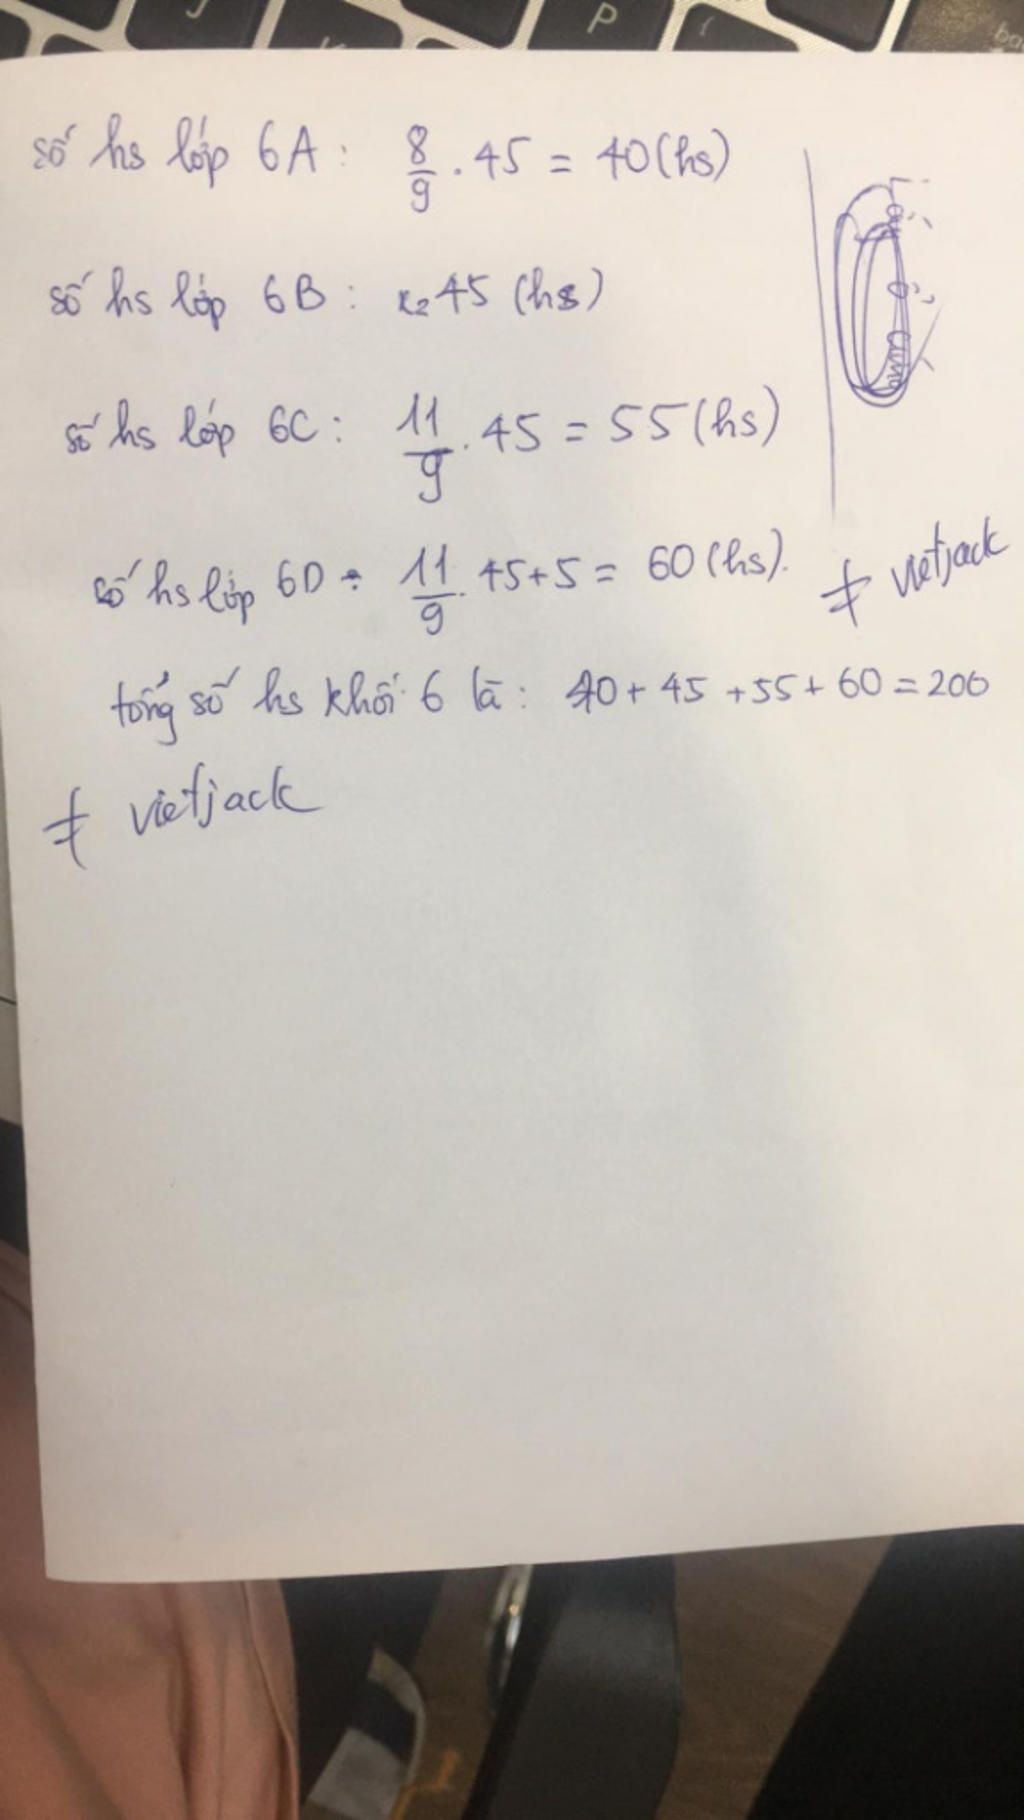 số hs lớp 6A: 8/9 . 45 = 40 (hs)
số hs lớp 6B: 45 (hs)
số hs lớp 6C: 11/9 . 45 = 55 (hs)
số hs lớp 6D: 11/9 . 45 + 5 = 60 (hs).
≠ vietjack
tổng số hs khối 6 là: 40 + 45 + 55 + 60 = 200
≠ vietjack
P